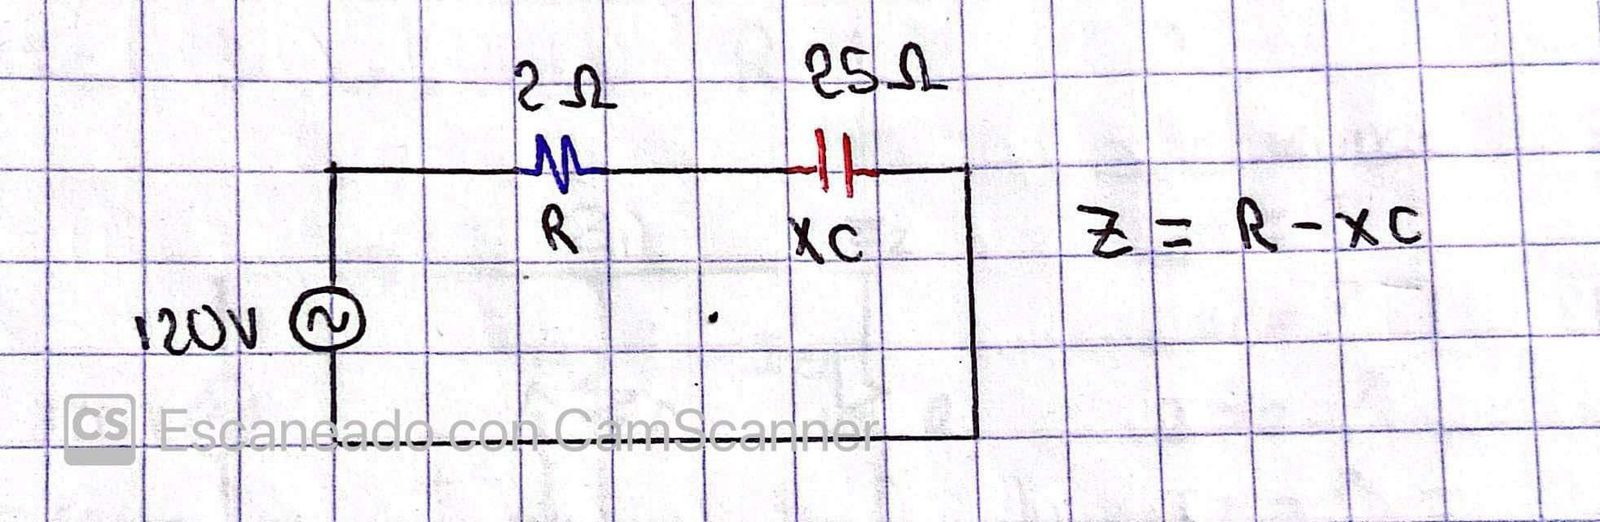 2Ω
25Ω
R
XC
Z = R - XC
120V
CS Escaneado con CamScanner